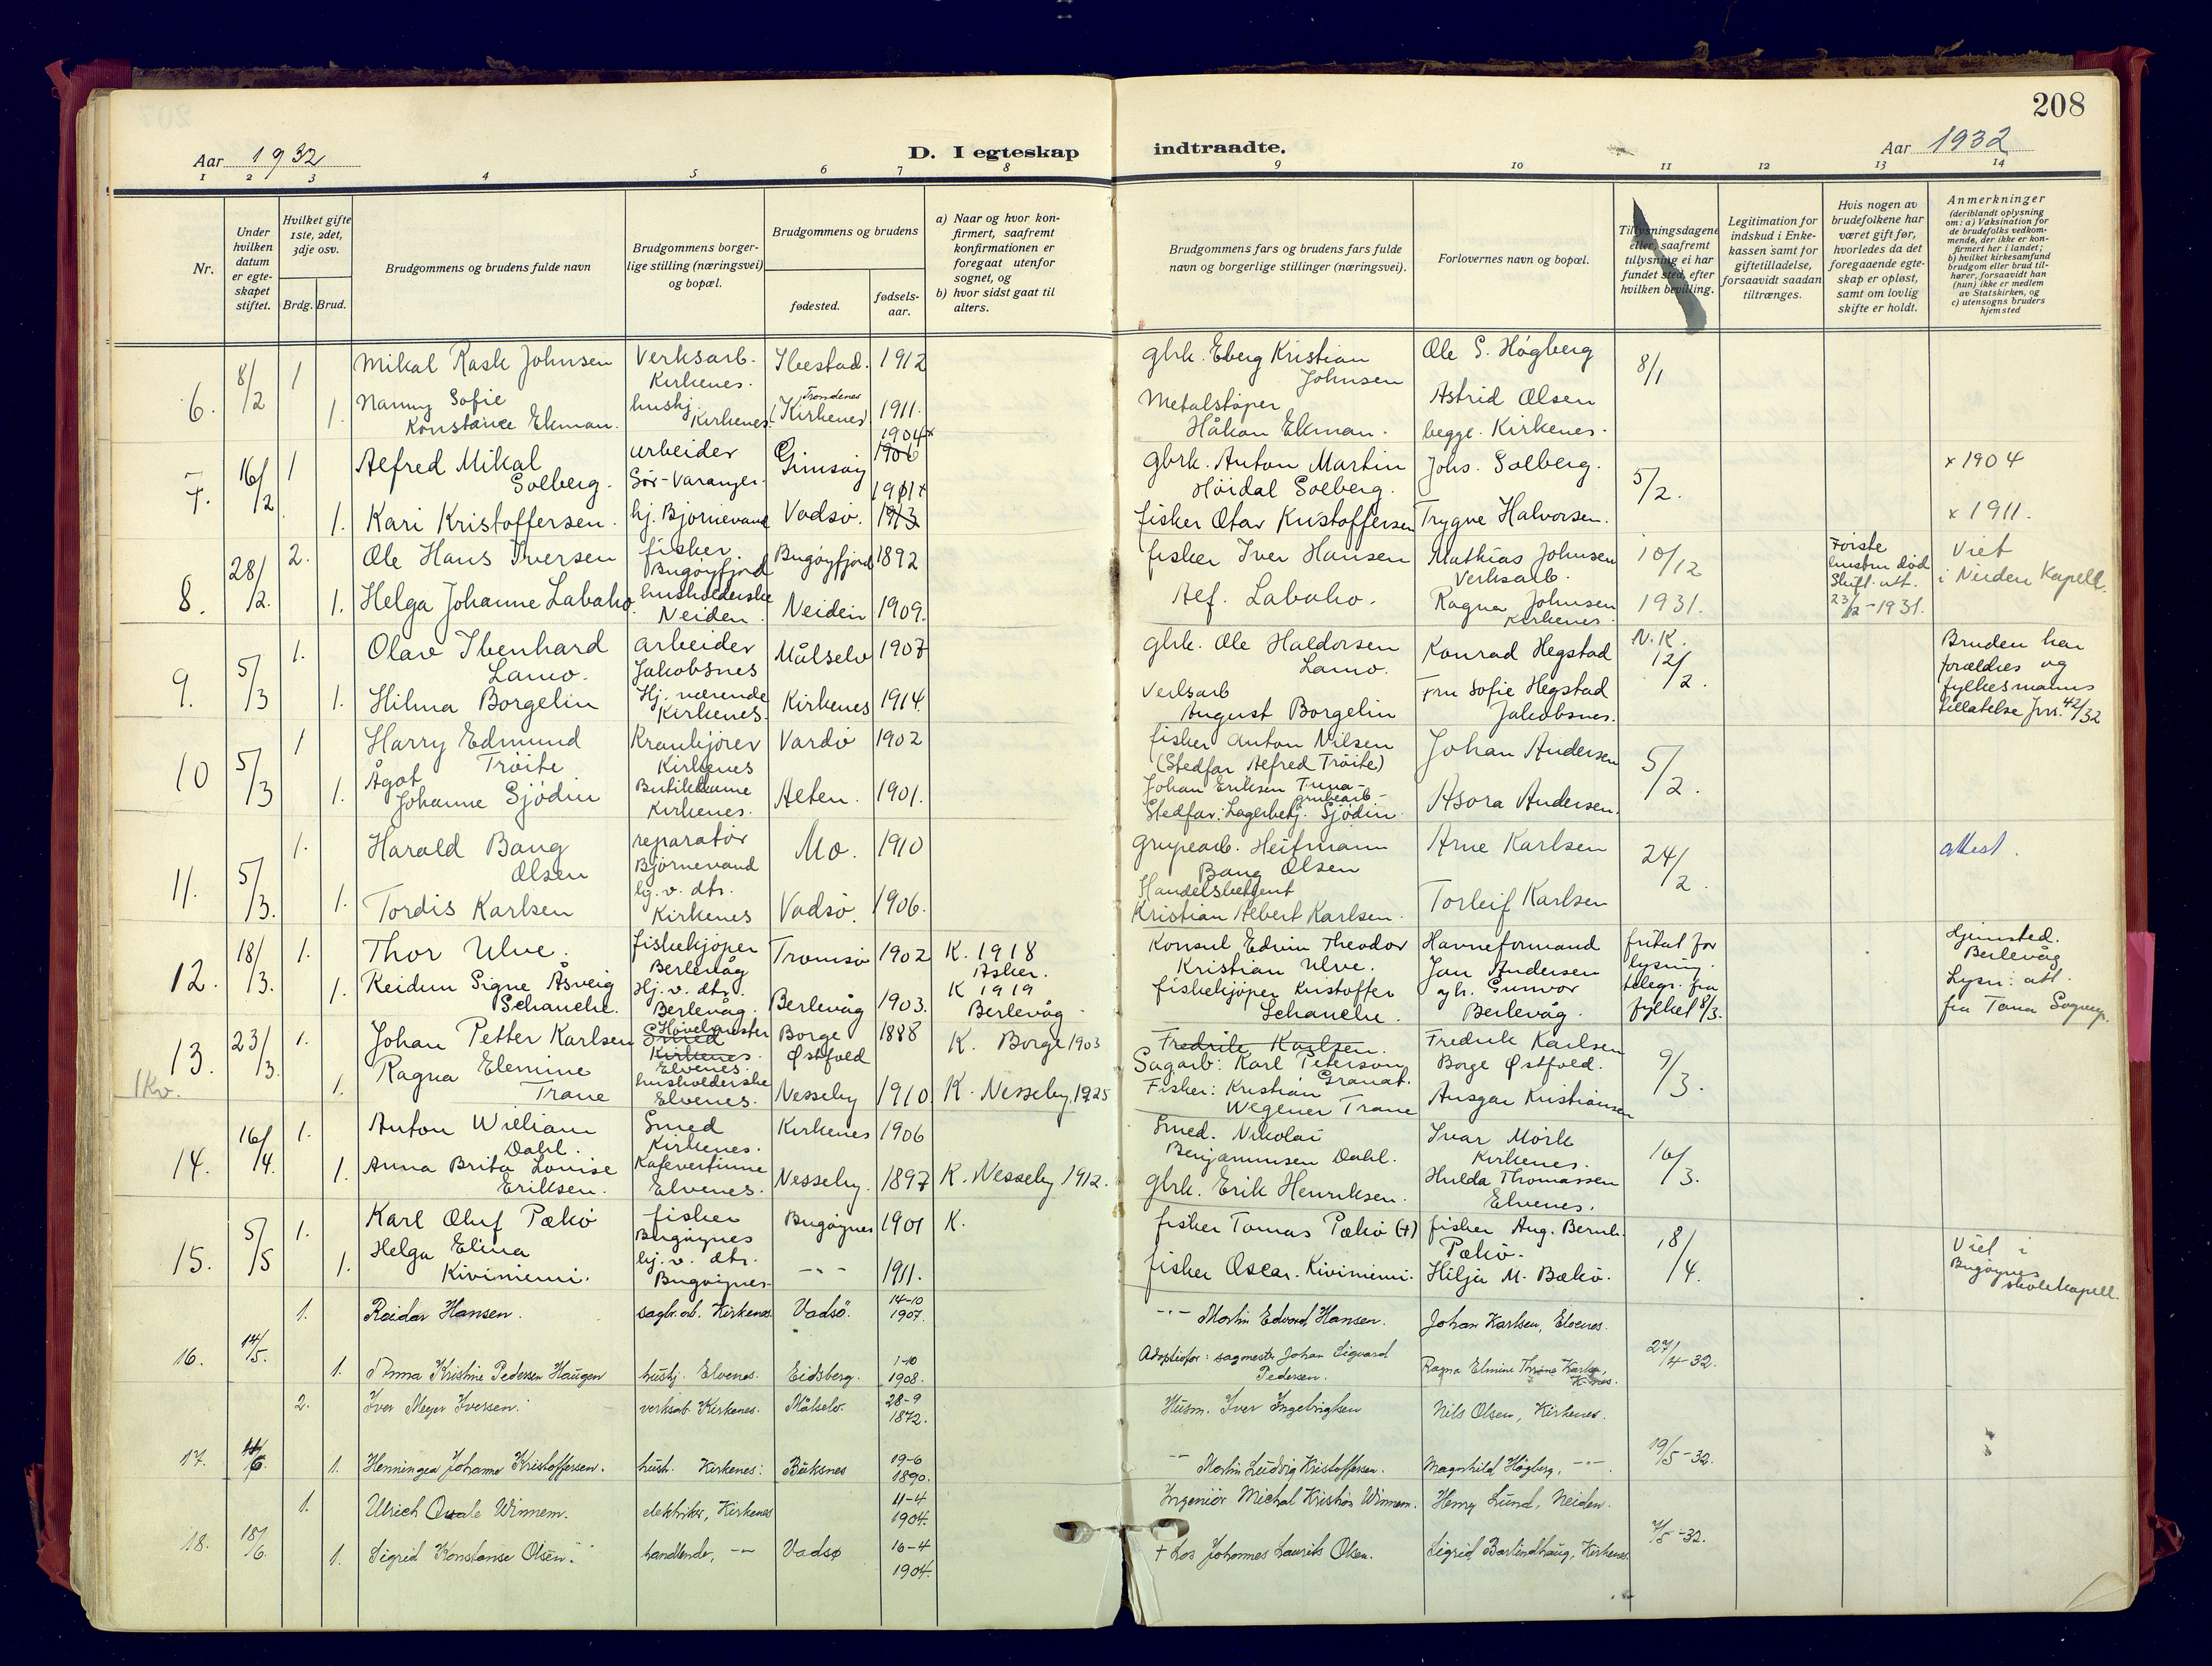 208
Aar 1932
D. I egteskap indtraadte.
Aar 1932
1 2 3 4 5 6 7 8 9 10 11 12 13 14
Nr.
Under hvilken datum er egteskapet stiftet.
Hvilket gifte 1ste, 2det, 3dje osv.
Brdg. Brud.
Brudgommens og brudens fulde navn
Brudgommens borgerlige stilling (næringsvei) og bopæl.
Brudgommens og brudens
fødested.
fødselsaar.
a) Naar og hvor konfirmert, saafremt konfirmationen er foregaat utenfor sognet, og
b) hvor sidst gaat til alters.
Brudgommens fars og brudens fars fulde navn og borgerlige stillinger (næringsvei).
Forlovernes navn og bopæl.
Tillysningsdagene eller, saafremt tillysning ei har fundet sted, efter hvilken bevilling.
Legitimation for indskud i Enkekassen samt for giftetilladelse, forsaavidt saadan tiltrænges.
Hvis nogen av brudefolkene har været gift før, hvorledes da det foregaaende egteskap er opløst, samt om lovlig skifte er holdt.
Anmerkninger
(deriblandt oplysning om: a) Vaksination for de brudefolks vedkommende, der ikke er konfirmert her i landet; b) hvilket kirkesamfund brudgom eller brud tilhører, forsaavidt han (hun) ikke er medlem av Statskirken, og c) utensogns bruders hjemsted
6. 8/2 1 Mikal Rask Johnsen Verksarb. Kirkenes. Ibestad. 1912 gbrk. Eberg Kristian Johnsen Ole S. Högberg 8/1
1. Nanny Sofie Konstance Ekman. hushj. Kirkenes. Trondenes (Kirkenes) 1911. Metalstøper Håkan Ekman. Astrid Olsen begge. Kirkenes.
7. 16/2 1 Alfred Mikal Solberg. arbeider Sør-Varanger. Gimsøy 1904x 1906 gbrk. Anton Martin Høidal Solberg. Johs. Solberg. 5/2. x 1904
1. Kari Kristoffersen. hj. Bjørnevand Vadsø. 1911x 1913 fisker Olav Kristoffersen Trygve Halvorsen. x 1911.
8. 28/2. 2. Ole Hans Iversen fisker. Bugøyfjord Bugøyfjord 1892 fisker Iver Hansen Mathias Johnsen Verksarb. 10/12 Første hustru død Skift. att. 23/12-1931. Viet i Neiden Kapell.
1. Helga Johanne Labaho. husholderske Neiden. Neiden 1909. Alf. Labaho. Ragna Johnsen Kirkenes. 1931.
9. 5/3 1. Olav Ibenhard Lamo. arbeider Jakobsnes Målselv 1907 gbrk. Ole Haldorsen Lamo. Konrad Hegstad N.K. 12/2. Bruden har forældres og fylkesmanns tillatelse Jnr. 42/32
1. Hilma Borgelin Hj. værende Kirkenes. Kirkenes 1914. Verksarb August Borgelin Fru Sofie Hegstad Jakobsnes.
10 5/3 1 Harry Edmund Trøite Krankjører Kirkenes Vardø 1902 fisker Anton Nilsen (Stedfar Alfred Trøite) Johan Andersen 5/2.
1. Ågot Johanne Sjödin Butikkdame Kirkenes. Alten. 1901. Johan Eriksen Tuna - grubearb - Stedfar: Lagerbetj. Sjödin. Asora Andersen.
11. 5/3. 1. Harald Bang Olsen reparatør Bjørnevand Mo. 1910 grupearb. Heifmann Bang Olsen Arne Karlsen 24/2. attest.
1. Tordis Karlsen hj. v. dtr. Kirkenes Vadsø. 1906. Handelsbetjent Kristian Albert Karlsen. Torleif Karlsen
12. 18/3. 1. Thor Ulve. fiskekjøper Berlevåg Tromsø 1902 K. 1918 Asker. Konsul Edvin Theodor Kristian Ulve. Havneformand Jan Andersen fritat for lysning. telegr. fra fylket 8/3. Hjemsted. Berlevåg Lysn: att fra Tana Sognepr.
1. Reidun Signe Åsveig Schanche. Hj. v. dtr. Berlevåg. Berlevåg 1903. K 1919 Berlevåg. fiskekjøper Kristoffer Schanche. og h. Gunvor Berlevåg.
13. 23/3. 1. Johan Petter Karlsen Høvelmester Smed Kirkenes. Elvenes. Borge Østfold 1888 K. Borge 1903 Fredrik Karlsen. Sagarb: Karl Peterson Granat. Fredrik Karlsen Borge Østfold. 9/3.
1 Kv. 1. Ragna Elemine Trane husholderske Elvenes. Nesseby 1910 K. Nesseby. 1925 Fisker: Kristian Wegener Trane Ansgar Kristiansen
14. 16/4. 1. Anton William Dahl. Smed Kirkenes. Kirkenes 1906 Smed. Nikolai Benjaminsen Dahl. Ivar Mørk Kirkenes. 16/3.
1. Anna Brita Lovise Eriksen. Kafevertinne Elvenes. Nesseby. 1897 K. Nesseby 1912. gbrk. Erik Henriksen. Hulda Thomassen Elvenes.
15. 5/5 1. Karl Oluf Pækø fisker Bugøynes Bugøynes 1901 K. fisker Tomas Pækø (+) fisker Aug. Bernh. Pækø. 18/4. Viet i Bugøynes skolekapell.
1. Helga Elina Kiviniemi. hj. v. dtr. Bugøynes - " - 1911. fisker Oscar. Kiviniemi. Hilja M. Bækø.
16. 14/5. 1. Reidar Hansen. sagbr. arb. Kirkenes. Vadsö. 14-10 1907. - " - Martin Edvard Hansen. Johan Karlsen, Elvenes. 27/4-32.
1. Anna Kristine Pedersen Haugen hushj. Elvenes. Eidsberg. 1-10 1908. Adoptivfar: sagmester Johan Sigvard Pedersen. Ragna Elmine Thrane Karlsen, K-nes.
17. 2. Iver Meyer Iversen. verksarb. Kirkenes. Målselv. 28-9 1872. Husm. Iver Ingebrigtsen Nils Olsen, Kirkenes. 19/5-32.
1. Henningea Johanne Kristoffersen. hush. Kirkenes. Buksnes 19-6 1890. - " - Martin Ludvig Kristoffersen. Magnhild Högberg, - " - .
18. 18/6. 1. Ulrich Qvale Winnem. elektriker, Kirkenes 11-4 1904. Ingeniör Michal Kristian Winnem. Henry Lund, Neiden. 7/5-32.
1. Sigrid Konstanse Olsen. handlende, - " - Vadsø 16-4 1904. + Los Johannes Laurits Olsen. Sigrid Barlindhaug, Kirkenes.